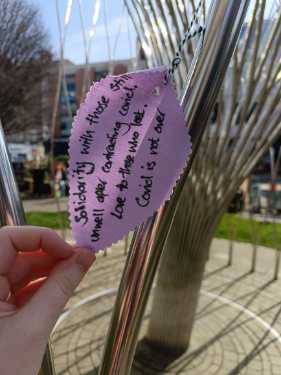 Solidarity with those still
unwell after contracting covid.
Love to those who lost.
Covid is not over